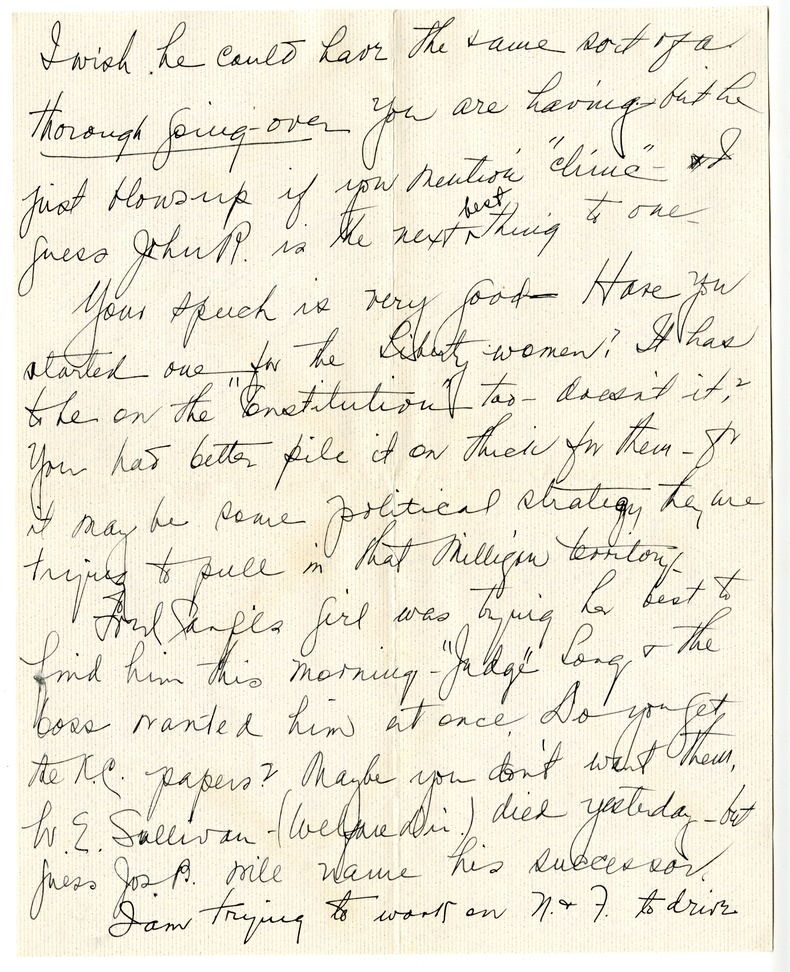 I wish he could have the same sort of a
thorough going-over you are having - but he
just blows up if you mention "clinic" - I
guess John R. is the next best thing to one -
Your speech is very good - Have you
started one for the Liberty women? It has
to be on the "Constitution" too - doesn't it?
You had better pile it on thick for them - for
it may be some political strategy they are
trying to pull in that Milligan territory.
Fred Canfil's girl was trying her best to
find him this morning - "Judge" Long & the
boss wanted him at once. Do you get
the K.C. papers? Maybe you don't want them.
W. E. Sullivan - (Welfare Dir.) died yesterday - but
guess Jos B. will name his successor.
I am trying to work on N. & F. to drive